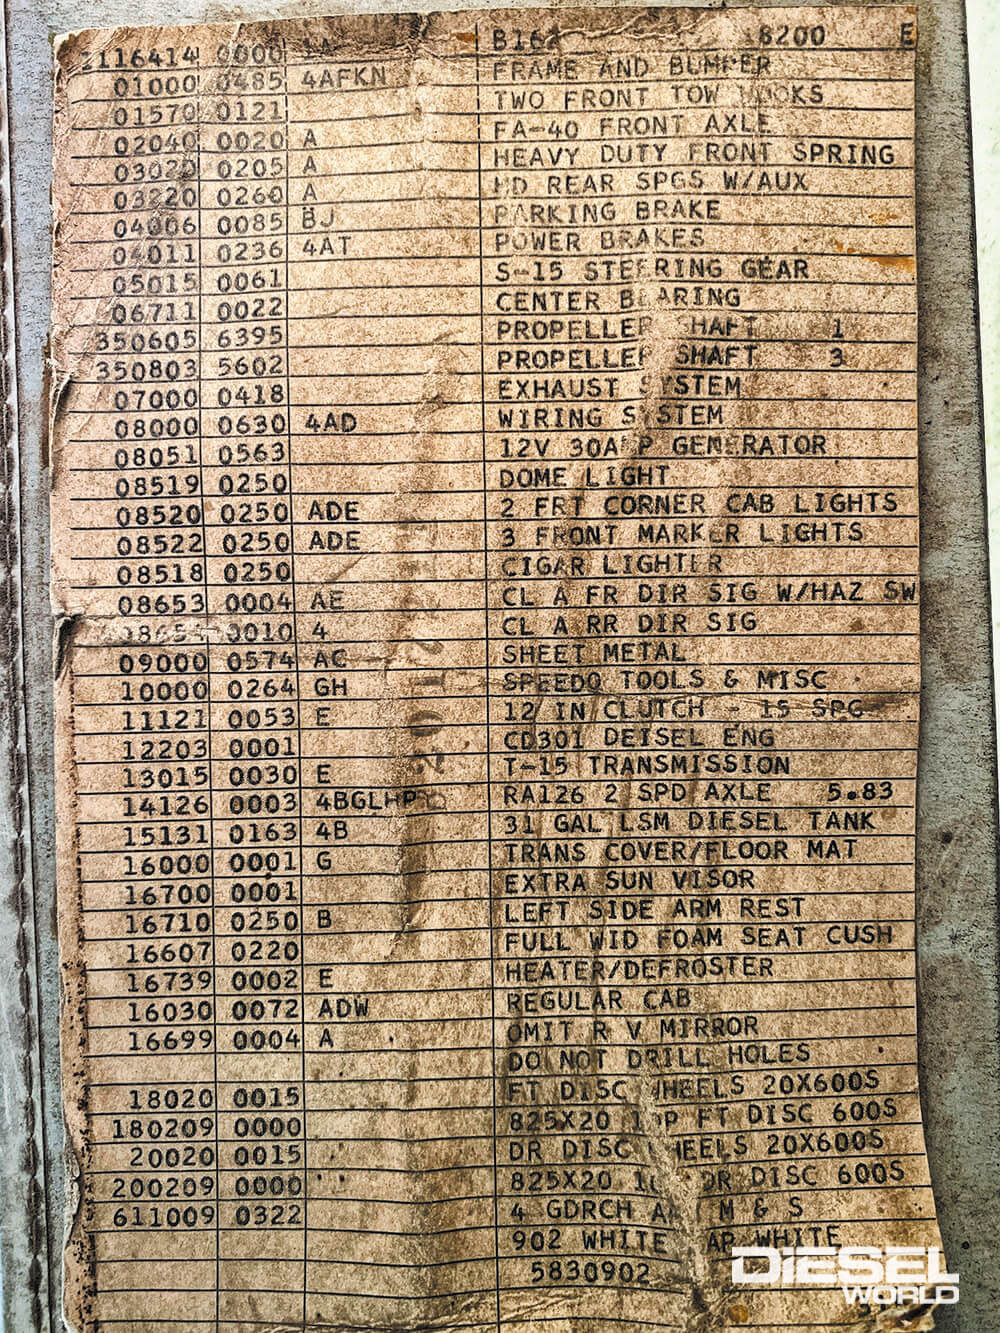 2116414 0000 1A B162 8200 E
01000 0485 4AFKN FRAME AND BUMPER
01570 0121 TWO FRONT TOW HOOKS
02040 0020 A FA-40 FRONT AXLE
03020 0205 A HEAVY DUTY FRONT SPRING
03220 0260 A HD REAR SPGS W/AUX
04006 0085 BJ PARKING BRAKE
04011 0236 4AT POWER BRAKES
05015 0061 S-15 STEERING GEAR
06711 0022 CENTER BEARING
350605 6395 PROPELLER SHAFT 1
350803 5602 PROPELLER SHAFT 3
07000 0418 EXHAUST SYSTEM
08000 0630 4AD WIRING SYSTEM
08051 0563 12V 30AMP GENERATOR
08519 0250 DOME LIGHT
08520 0250 ADE 2 FRT CORNER CAB LIGHTS
08522 0250 ADE 3 FRONT MARKER LIGHTS
08518 0250 CIGAR LIGHTER
08653 0004 AE CL A FR DIR SIG W/HAZ SW
08654 0010 4 CL A RR DIR SIG
09000 0574 AC SHEET METAL
10000 0264 GH SPEEDO TOOLS & MISC
11121 0053 E 12 IN CLUTCH - 15 SPG
12203 0001 CD301 DEISEL ENG
13015 0030 E T-15 TRANSMISSION
14126 0003 4BGLHP RA126 2 SPD AXLE 5.83
15131 0163 4B 31 GAL LSM DIESEL TANK
16000 0001 G TRANS COVER/FLOOR MAT
16700 0001 EXTRA SUN VISOR
16710 0250 B LEFT SIDE ARM REST
16607 0220 FULL WID FOAM SEAT CUSH
16739 0002 E HEATER/DEFROSTER
16030 0072 ADW REGULAR CAB
16699 0004 A OMIT R V MIRROR
DO NOT DRILL HOLES
18020 0015 FT DISC WHEELS 20X600S
180209 0000 825X20 10P FT DISC 600S
20020 0015 DR DISC WHEELS 20X600S
200209 0000 825X20 DR DISC 600S
611009 0322 4 GDRCH M & S
902 WHITE WHITE
5830902
DIESEL
WORLD